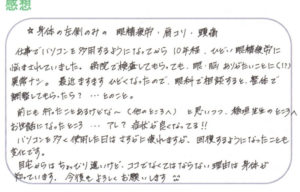 感想
☆身体の左側のみの 眼精疲労・肩コリ・頭痛
仕事でパソコンを多用するようになってから 10年程、ひどい眼精疲労に
悩まされていました。病院で検査してもらっても、眼・脳 ありがたいことに(!?)
異常ナシ。最近ますます ひどくなったので、眼科で相談すると、整体で
調整してもらったら?…とのこと。
前にも行ったことあるけどな〜(他のところへ)と思いつつ、 先生のところへ
お世話になったところ…で? 症状が良くなってる!!
パソコンを多く使用した日はさすがに疲れますが、回復するようになったことも
変化です。
自宅からはちょっぴり遠いけど、ココでなくてはならない理由は身体が
知っています。今後もよろしくお願いします